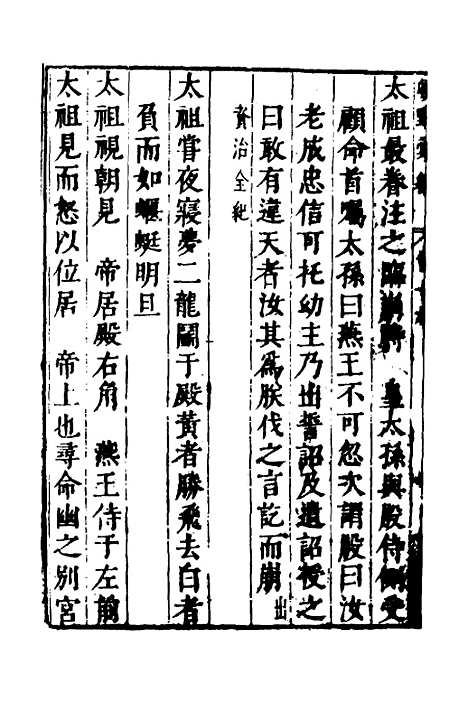 太祖最眷注之臨崩時　皇太孫與殷侍側受
顧命首囑太孫曰燕王不可忽次謂殷曰汝
老成忠信可托幼主乃出誓詔及遺詔授之
曰敢有違天者汝其爲朕伐之言訖而崩出
資治全紀
太祖嘗夜寢夢二龍鬭于殿黃者勝飛去白者
負而如蝘蜓明旦
太祖視朝見　帝居殿右角　燕王侍于左前
太祖見而怒以位居　帝上也尋命幽之别宮